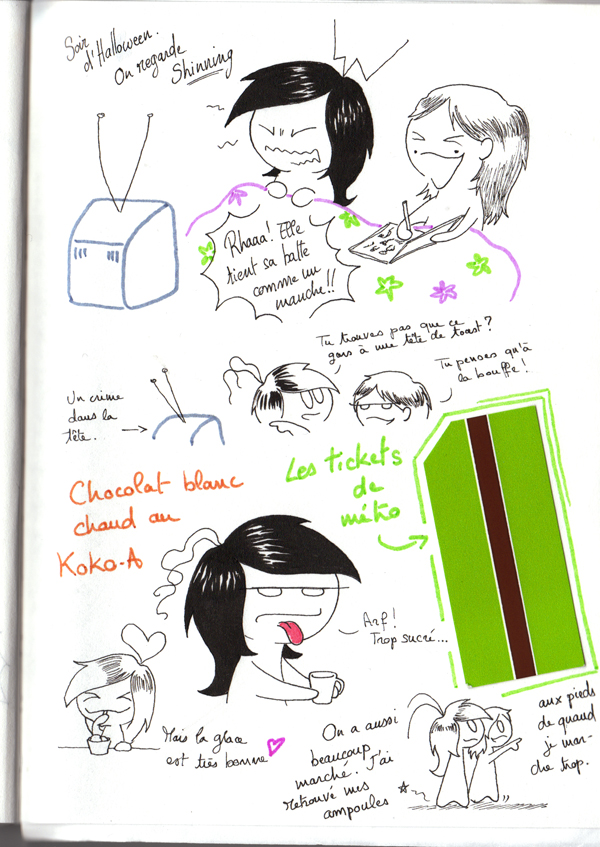 Soir
d'Halloween.
On regarde
Shinning
Rhaaa! Elle
tient sa batte
comme un
manche!!
Tu trouves pas que ce
gars à une tête de toast?
Tu penses qu'à
la bouffe!
Un crime
dans la
tête.
Chocolat blanc
chaud au
Koko-A
Les tickets
de
métro
Arf!
Trop sucré...
Mais la glace
est très bonne
On a aussi
beaucoup
marché. J'ai
retrouvé mes
ampoules
aux pieds
de quand
je mar-
che trop.